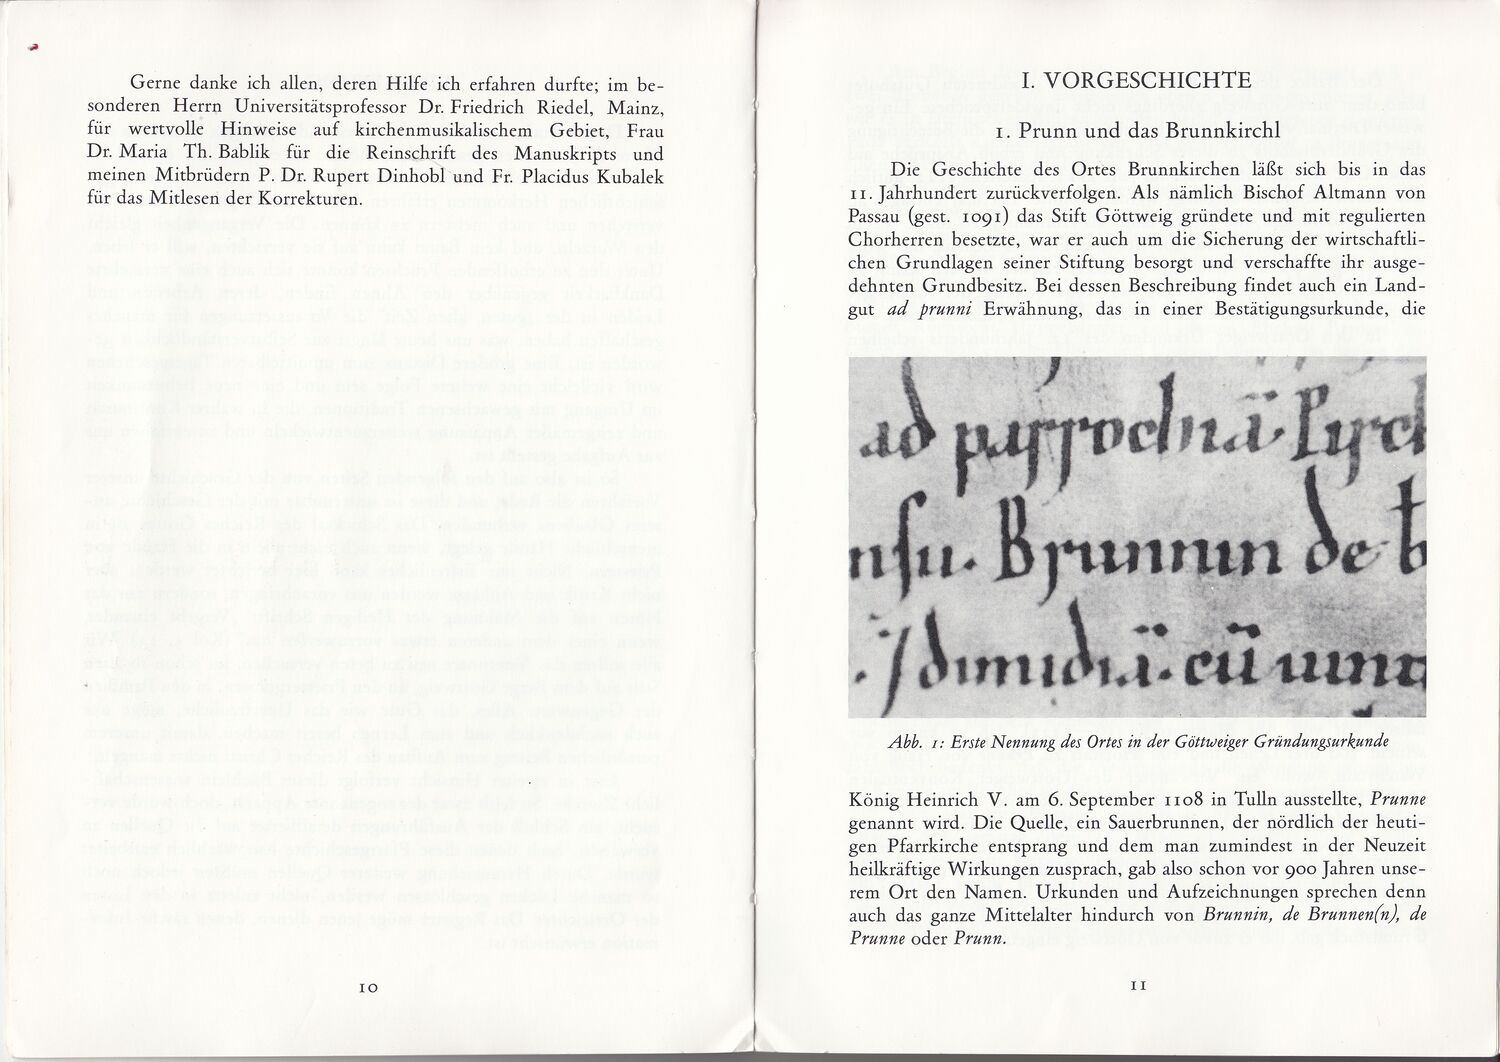 Gerne danke ich allen, deren Hilfe ich erfahren durfte; im be-
sonderen Herrn Universitätsprofessor Dr. Friedrich Riedel, Mainz,
für wertvolle Hinweise auf kirchenmusikalischem Gebiet, Frau
Dr. Maria Th. Bablik für die Reinschrift des Manuskripts und
meinen Mitbrüdern P. Dr. Rupert Dinhobl und Fr. Placidus Kubalek
für das Mitlesen der Korrekturen.
10
I. VORGESCHICHTE
1. Prunn und das Brunnkirchl
Die Geschichte des Ortes Brunnkirchen läßt sich bis in das
11. Jahrhundert zurückverfolgen. Als nämlich Bischof Altmann von
Passau (gest. 1091) das Stift Göttweig gründete und mit regulierten
Chorherren besetzte, war er auch um die Sicherung der wirtschaftli-
chen Grundlagen seiner Stiftung besorgt und verschaffte ihr ausge-
dehnten Grundbesitz. Bei dessen Beschreibung findet auch ein Land-
gut ad prunni Erwähnung, das in einer Bestätigungsurkunde, die
ad parrochiā Pyrch
nsu. Brunnin de
dimidiā. cū
Abb. 1: Erste Nennung des Ortes in der Göttweiger Gründungsurkunde
König Heinrich V. am 6. September 1108 in Tulln ausstellte, Prunne
genannt wird. Die Quelle, ein Sauerbrunnen, der nördlich der heuti-
gen Pfarrkirche entsprang und dem man zumindest in der Neuzeit
heilkräftige Wirkungen zusprach, gab also schon vor 900 Jahren unse-
rem Ort den Namen. Urkunden und Aufzeichnungen sprechen denn
auch das ganze Mittelalter hindurch von Brunnin, de Brunnen(n), de
Prunne oder Prunn.
11